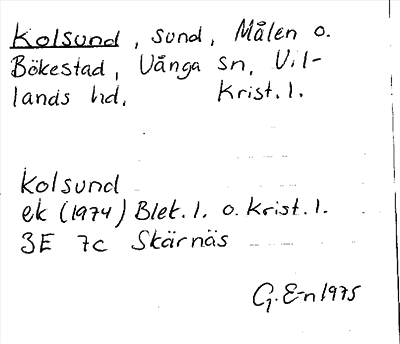 Kolsund, sund, Målen o.
Bökestad, Vånga sn, Vil-
lands hd. Krist. l.
Kolsund
ek (1974) Blek. l. o. Krist. l.
3E 7c Skärnäs
G. E-n 1975